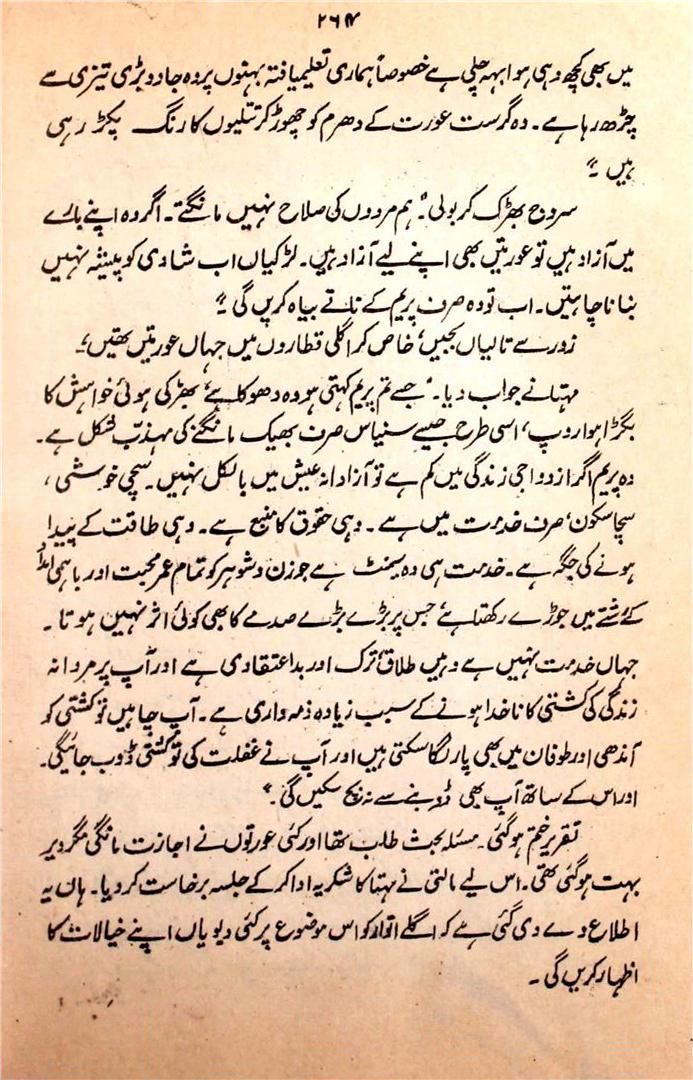 ۲۶۴
میں بھی کچھ وہی ہوا بہہ چلی ہے خصوصاً ہماری تعلیمیافتہ بہنوں پر وہ جادو بڑی تیزی سے
چڑھ رہا ہے۔ وہ گرست عورت کے دھرم کو چھوڑ کر تتلیوں کا رنگ پکڑ رہی
ہیں۔"
سروج بھڑک کر بولی۔ "ہم مردوں کی صلاح نہیں مانگتے۔ اگر وہ اپنے بارے
میں آزاد ہیں تو عورتیں بھی اپنے لیے آزاد ہیں۔ لڑکیاں اب شادی کو پیشہ نہیں
بنانا چاہتیں۔ اب تو وہ صرف پریم کے ناتے بیاہ کریں گی۔"
زور سے تالیاں بجیں، خاص کر اگلی قطاروں میں جہاں عورتیں تھیں۔
مہتا نے جواب دیا۔ "جسے تم پریم کہتی ہو وہ دھوکا ہے، بھڑکی ہوئی خواہش کا
بگڑا ہوا روپ، اسی طرح جیسے سنیاس صرف بھیک مانگنے کی مہذب شکل ہے۔
وہ پریم اگر ازدواجی زندگی میں کم ہے تو آزادانہ عیش میں بالکل نہیں۔ سچی خوشی،
سچا سکون، صرف خدمت میں ہے۔ وہی حقوق کا منبع ہے۔ وہی طاقت کے پیدا
ہونے کی جگہ ہے۔ خدمت ہی وہ سیمنٹ ہے جو زن و شوہر کو تمام عمر محبت اور باہمی امداد
کے رشتے میں جوڑے رکھتا ہے، جس پر بڑے بڑے صدمے کا بھی کوئی اثر نہیں ہوتا۔
جہاں خدمت نہیں ہے وہیں طلاق، ترک اور بداعتقادی ہے اور آپ پر مردانہ
زندگی کی کشتی کا ناخدا ہونے کے سبب زیادہ ذمہ داری ہے۔ آپ چاہیں تو کشتی کو
آندھی اور طوفان میں بھی پار لگا سکتی ہیں اور آپ نے غفلت کی تو کشتی ڈوب جائیگی۔
اور اس کے ساتھ آپ بھی ڈوبنے سے نہ بچ سکیں گی۔"
تقریر ختم ہو گئی۔ مسئلہ بحث طلب تھا اور کئی عورتوں نے اجازت مانگی مگر دیر
بہت ہو گئی تھی۔ اس لیے مالتی نے مہتا کا شکریہ ادا کر کے جلسہ برخاست کر دیا۔ ہاں یہ
اطلاع دے دی گئی ہے کہ اگلے اتوار کو اس موضوع پر کئی دیویاں اپنے خیالات کا
اظہار کریں گی۔